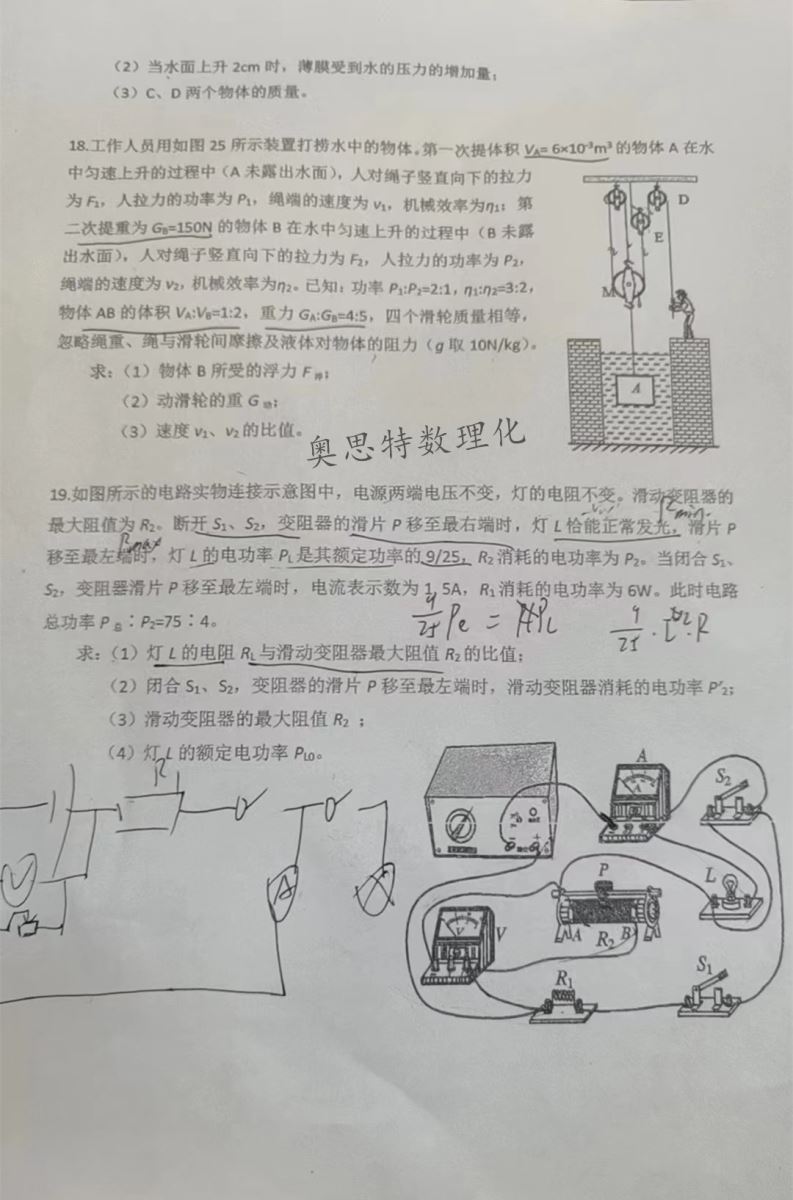 （2）当水面上升 2cm 时，薄膜受到水的压力的增加量；
（3）C、D 两个物体的质量。
18.工作人员用如图 25 所示装置打捞水中的物体。第一次提体积 V_A= 6×10⁻³m³ 的物体 A 在水
中匀速上升的过程中（A 未露出水面），人对绳子竖直向下的拉力
为 F₁，人拉力的功率为 P₁，绳端的速度为 v₁，机械效率为η₁；第
二次提重为 G_B=150N 的物体 B 在水中匀速上升的过程中（B 未露
出水面），人对绳子竖直向下的拉力为 F₂，人拉力的功率为 P₂，
绳端的速度为 v₂，机械效率为η₂。已知：功率 P₁:P₂=2:1，η₁:η₂=3:2，
物体 AB 的体积 V_A:V_B=1:2，重力 G_A:G_B=4:5，四个滑轮质量相等，
忽略绳重、绳与滑轮间摩擦及液体对物体的阻力（g 取 10N/kg）。
求：（1）物体 B 所受的浮力 F浮；
（2）动滑轮的重 G动；
（3）速度 v₁、v₂ 的比值。
D
E
M
A
奥思特数理化
19.如图所示的电路实物连接示意图中，电源两端电压不变，灯的电阻不变。滑动变阻器的
Rmin
最大阻值为 R₂。断开 S₁、S₂，变阻器的滑片 P 移至最右端时，灯 L 恰能正常发光，滑片 P
Rmax
移至最左端时，灯 L 的电功率 P_L 是其额定功率的 9/25，R₂ 消耗的电功率为 P₂。当闭合 S₁、
S₂，变阻器滑片 P 移至最左端时，电流表示数为 1.5A，R₁ 消耗的电功率为 6W。此时电路
总功率 P总：P₂=75：4。
求：（1）灯 L 的电阻 R_L 与滑动变阻器最大阻值 R₂ 的比值；
（2）闭合 S₁、S₂，变阻器的滑片 P 移至最左端时，滑动变阻器消耗的电功率 P′₂；
（3）滑动变阻器的最大阻值 R₂ ；
（4）灯 L 的额定电功率 P_L0。
R
A
A
S₂
P
L
V
V
A
R₂
B
R₁
S₁
A